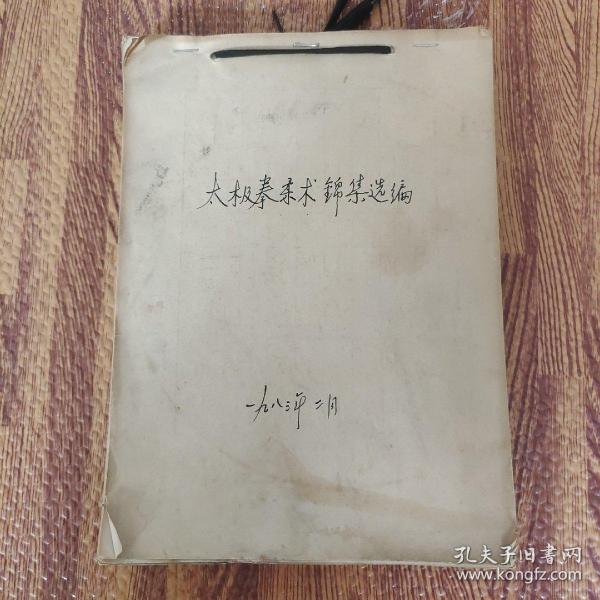 太极拳柔术錦集选编
一九八三年二月
孔夫子旧書网
www.kongfz.com